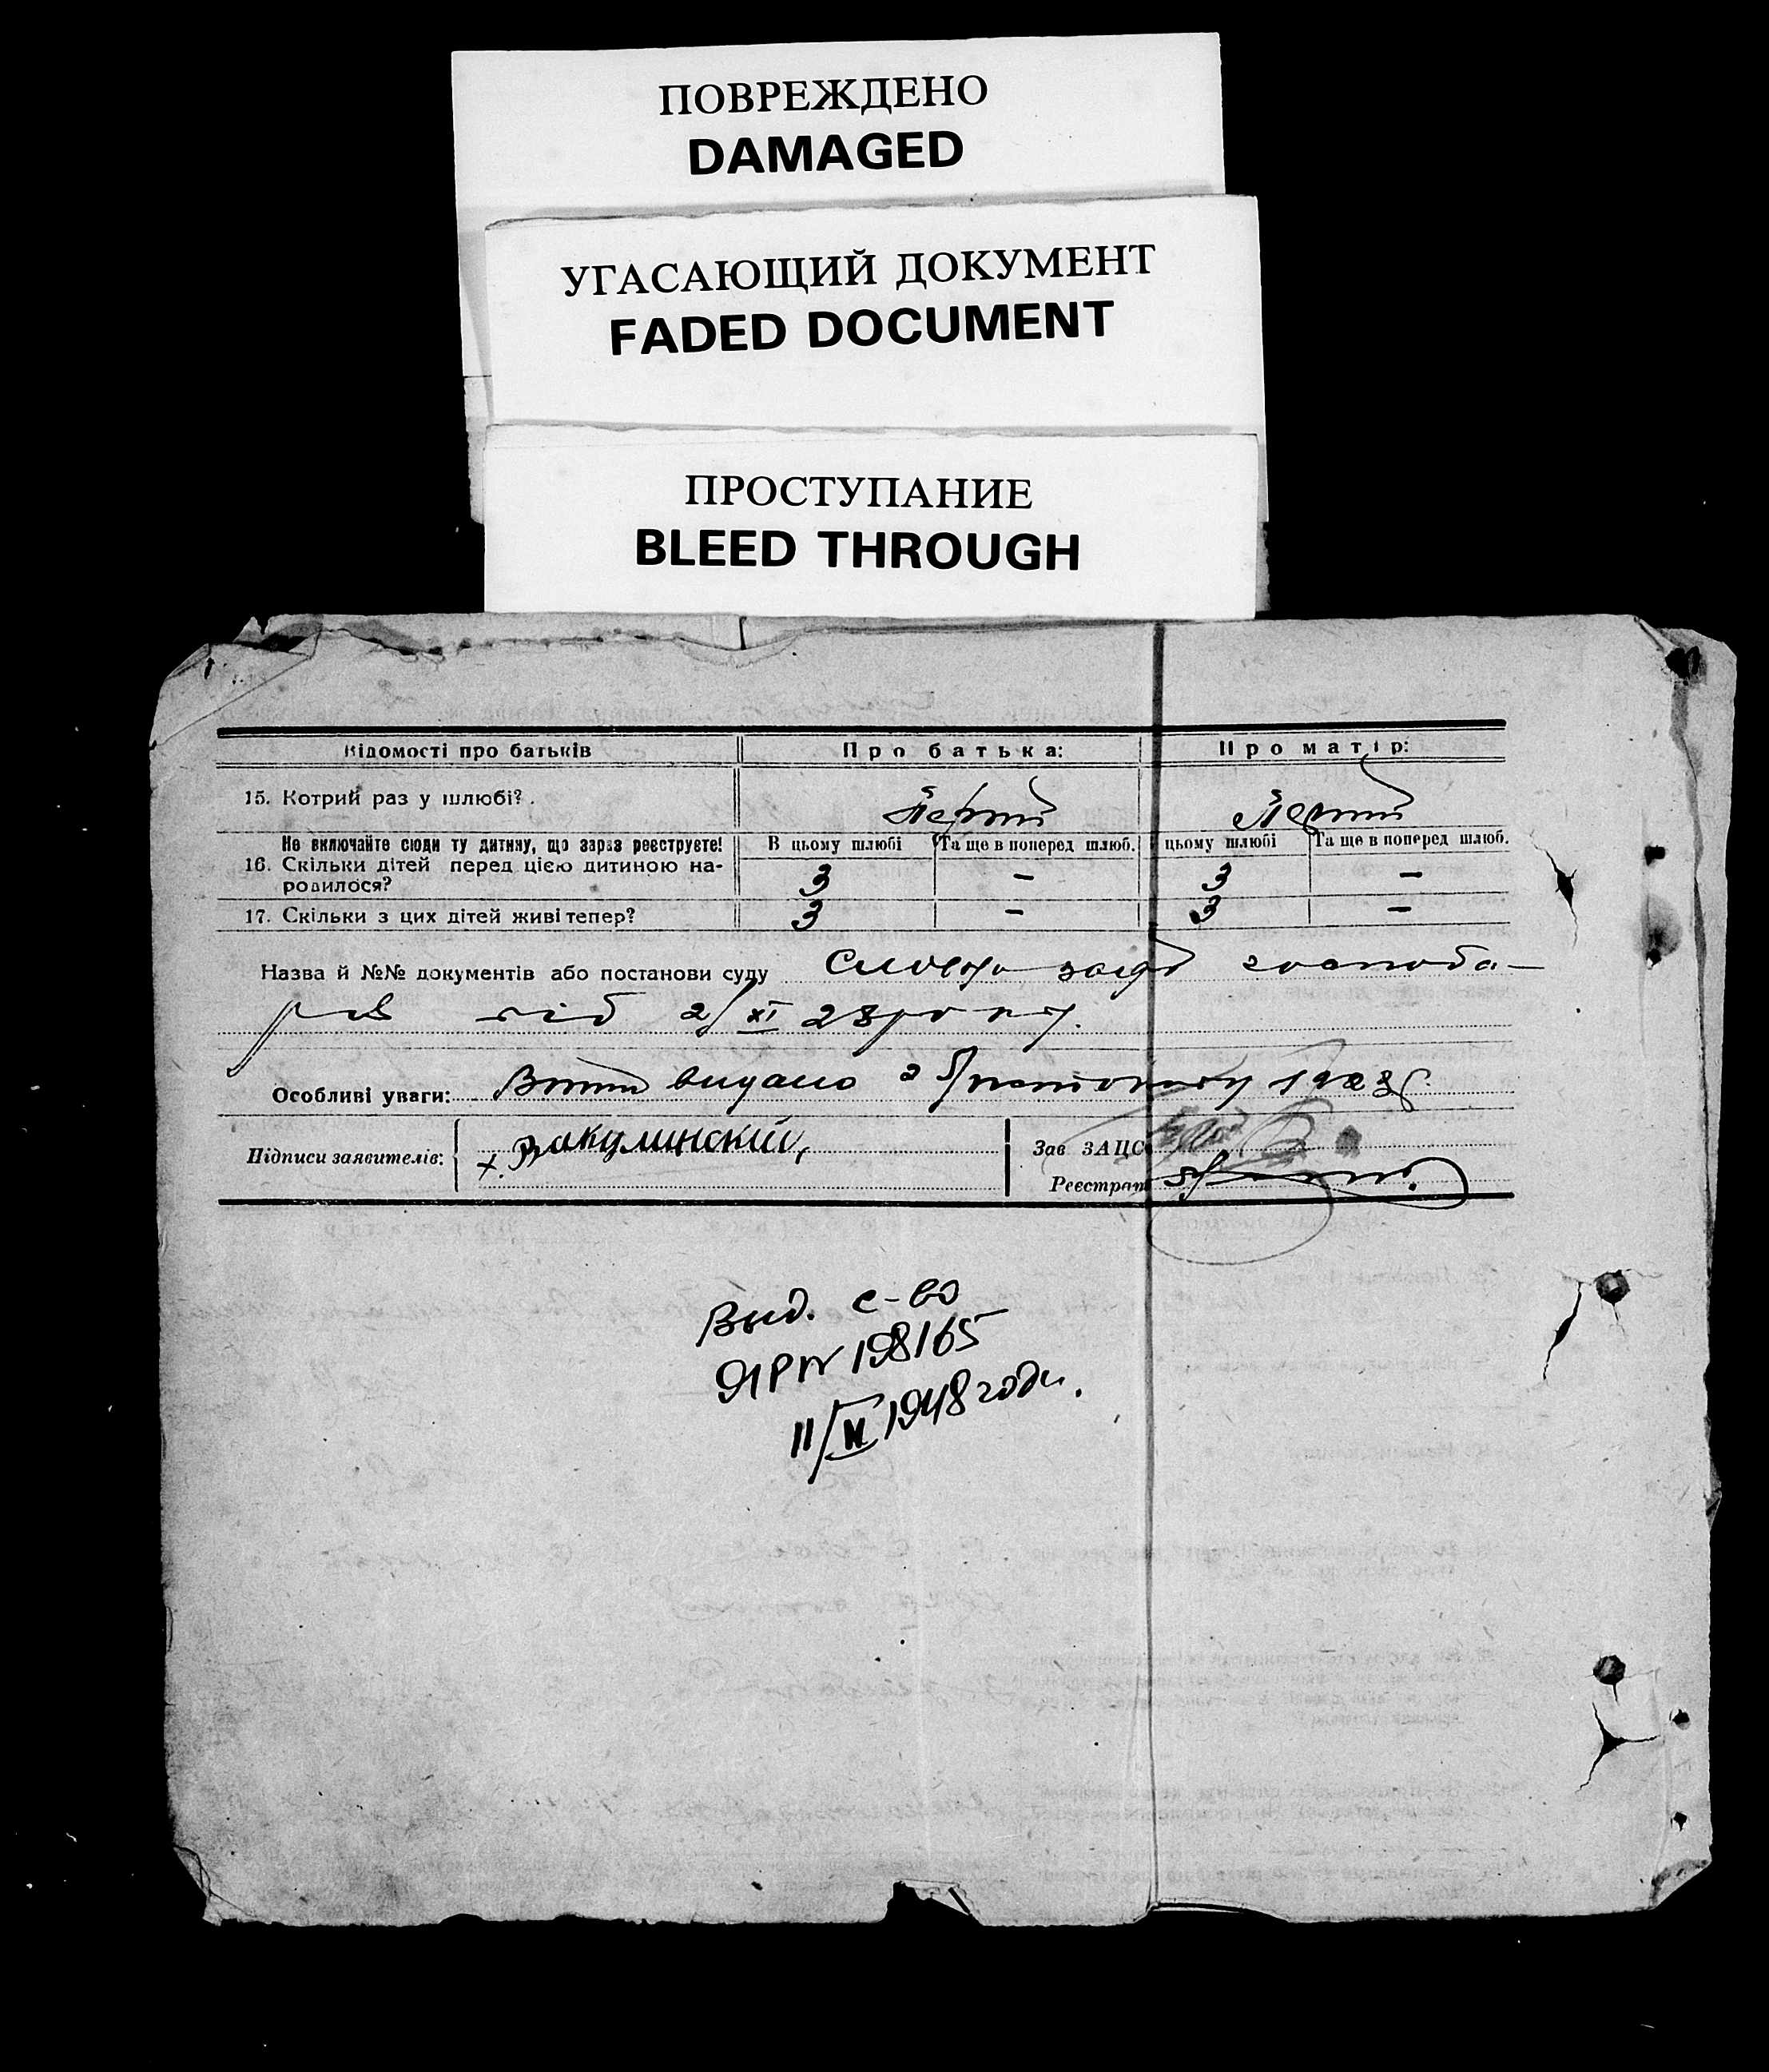 ПОВРЕЖДЕНО
DAMAGED
УГАСАЮЩИЙ ДОКУМЕНТ
FADED DOCUMENT
ПРОСТУПАНИЕ
BLEED THROUGH
Відомості про батьків Про батька: Про матір:
15. Котрий раз у шлюбі? Перший Перший
Не включайте сюди ту дитину, що зараз реєструєте! В цьому шлюбі Та ще в поперед шлюб. цьому шлюбі Та ще в поперед шлюб.
16. Скільки дітей перед цією дитиною на-
родилося? 3 – 3 –
17. Скільки з цих дітей живі тепер? 3 – 3 –
Назва й №№ документів або постанови суду господа-
рів від 2/XI 28 року.
Особливі уваги: Витяг видано 2 1928 р.
Підписи заявителів: х. Вакулинский, Зав ЗАЦС
Реєстрат
Выд. с-во
ЯР № 198165
11/VI 1948 года.